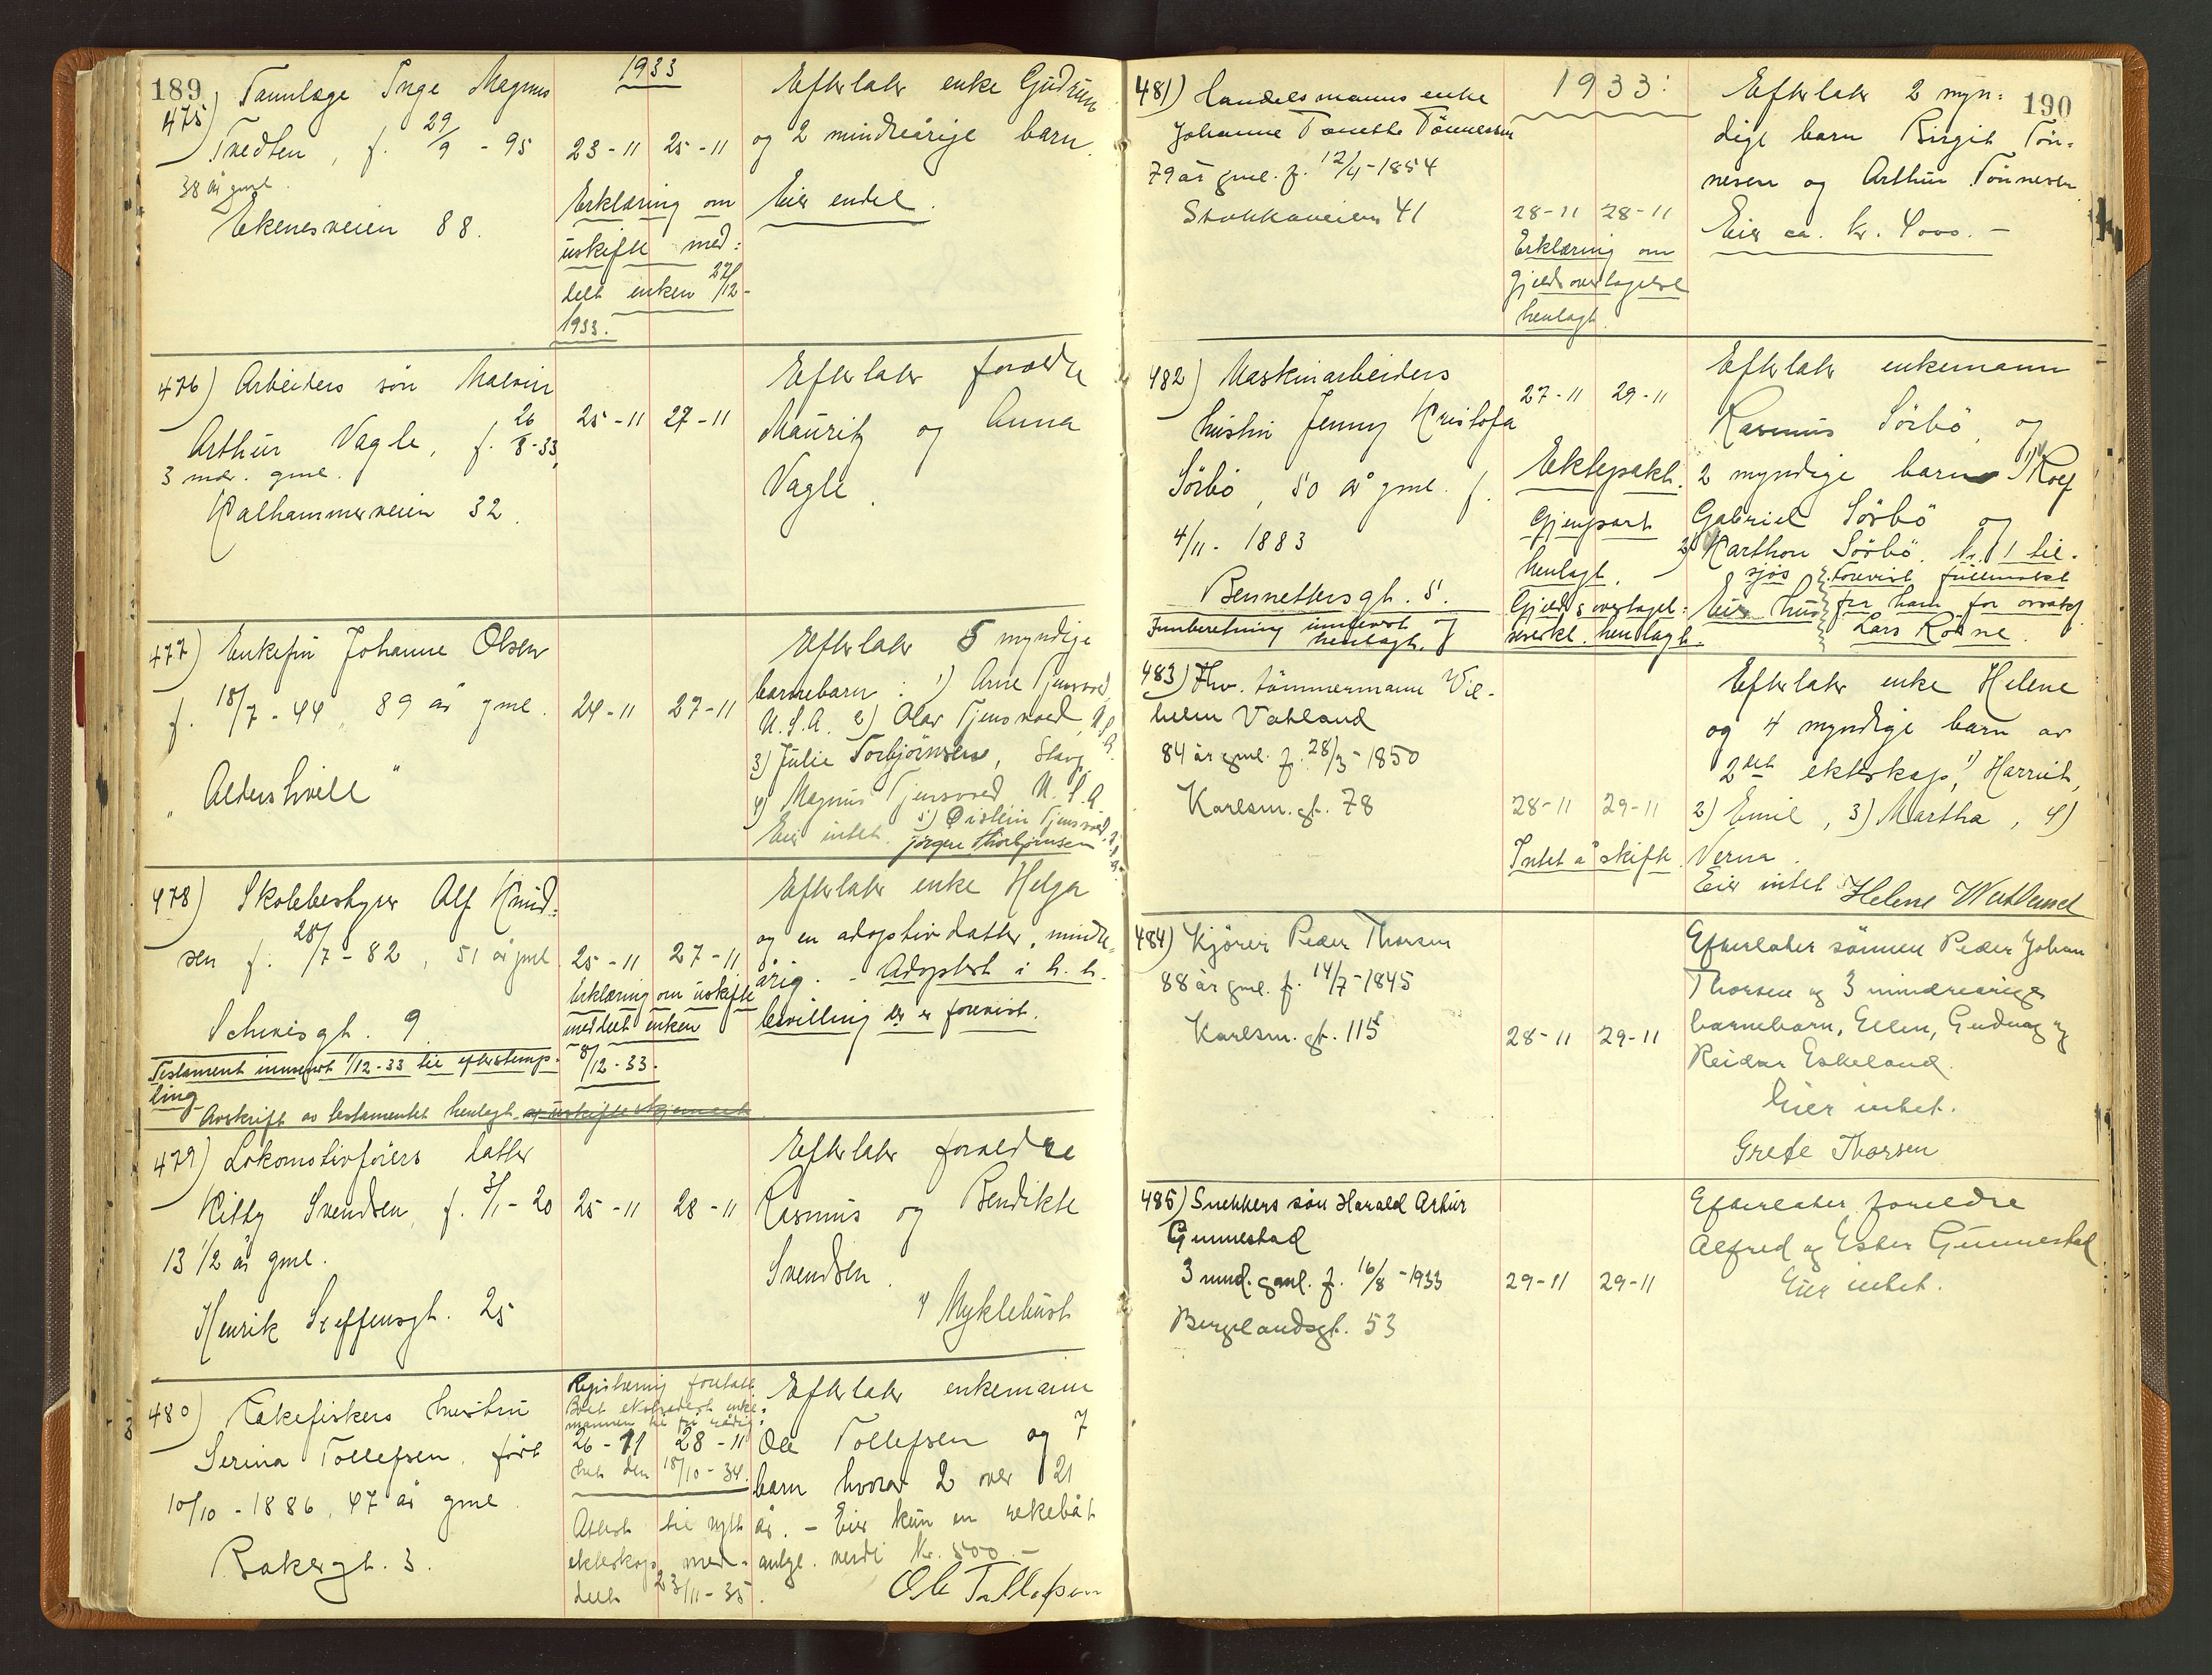 189
1933
475) Tannlæge Inge Magnus
Tvedten, f. 29/9 - 95
38 år gml.
Ekenesveien 88.
23-11 25-11
Erklæring om
uskifte med:
delt enken 27/12-
1933.
Efterlater enke Gudrun
og 2 mindreårige barn.
Eier endel.
476) Arbeiders søn Malvin
Arthur Vagle, f. 26/8-33,
3 mdr. gml.
Kalhammerveien 32.
25-11 27-11
Efterlater foreldre
Mauritz og Anna
Vagle.
477) Enkefru Johanne Olsen
f. 18/7-44, 89 år gml.
"Aldershvile"
24-11 27-11
Efterlater 5 myndige
barnebarn: 1) Arne Tjensvold,
U.S.A. 2) Olav Tjensvold, U.S.A.
3) Julie Torbjørnsen, Stavg.
4) Magnus Tjensvold U.S.A.
5) Øistein Tjensvold, U.S.A.
Eier intet. Jørgen Thorbjørnsen
478) Skolebestyrer Alf Knud-
sen f. 28/7-82, 51 år gml.
Schivesgt. 9.
Testament innlevert 1/12-33 til efterstemp-
ling
Avskrift av testamentet henlagt
25-11 27-11
Erklæring om uskifte
meddelt enken
8/12-33.
Efterlater enke Helga
og en adoptivdatter, mindre-
årig. - Adoptert i h. t.
bevilling der er forevist.
479) Lokomotivførers datter
Kitty Svendsen, f. 3/1-20
13 1/2 år gml.
Henrik Steffensgt. 25
25-11 28-11
Efterlater foreldre
Rasmus og Bendikte
Svendsen.
Myklebust
480) Rekefiskers hustru
Serina Tollefsen, født
10/10-1886, 47 år gml.
Bakergt. 3.
Registrering foretatt
Boet ekstradert enke-
mannen til fri rådig-
26-11 28-11
het den 18/10-34.
Attest til nytt
ekteskap med-
delt 23/11-35.
Efterlater enkemann
Ole Tollefsen og 7
barn hvorav 2 over 21
år. - Eier kun en rekebåt
antgl. verdi kr. 500.-
Ole Tollefsen
190
1933:
481) Handelsmanns enke
Johanne Tonette Tønnessen
79 år gml. f. 12/4-1854
Stokkaveien 41
28-11 28-11
Erklæring om
gjeldsovertagelse
henlagt.
Efterlater 2 myn-
dige barn Birgit Tøn-
nesen og Arthur Tønnesen
Eier ca. kr. 4000.-
482) Maskinarbeiders
hustru Jenny Kristofa
Sörbö, 50 år gml. f.
4/11-1883
Bennettersgt. 5.
Innberetning innlevert og
henlagt.
27-11 29-11
Ektepakt.
Gjenpart
henlagt.
Gjeldsovertagel-
seserkl. henlagt.
Efterlater enkemann
Rasmus Sörbö, og
2 myndige barn 1) Rolf
Gabriel Sörbö og
2) Karthon Sörbö. Nr. 1 til-
sjös. Forevist fullmakt
Eier hus fra ham for orsakf.
Lars Rönne.
483) Fhv. tömmermann Vil-
helm Vatland
84 år gml. f. 28/3-1850
Karlsm. gt. 78
28-11 29-11
Intet å skifte.
Efterlater enke Helene
og 4 myndige barn av
2det ekteskap, 1) Harriet,
2) Emil, 3) Martha, 4)
Verna.
Eier intet Helene Watland
484) Kjörer Peder Thorsen
88 år gml. f. 14/7-1845
Karlsm. gt. 115
28-11 29-11
Efterlater sönnen Peder Johan
Thorsen og 3 mindreårige
barnebarn, Ellen, Gudny og
Reidar Eskeland.
Eier intet.
Grete Thorsen
485) Snekkers sön Harald Artur
Gunnestad
3 mnd. gml. f. 16/8-1933
Bergelandsgt. 53
29-11 29-11
Efterlater foreldre
Alfred og Ester Gunnestad
Eier intet.